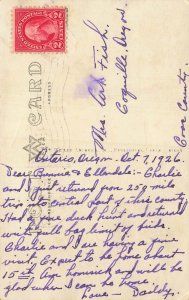 Mrs. Art Fish.
Coquille, Oregon
Coos County.
CARD
Ontario, Oregon. Oct. 7, 1926.
Dear Bonnie & Ellendale:- Charlie
and I just returned from 250 mile
trip to central part of this county.
Had a fine duck hunt and returned
with full bag limit of birds.
Charlie and I are having a fine
visit. Expect to be home about
15th. Am homesick and will be
glad when I can be home.
Love - Daddy.